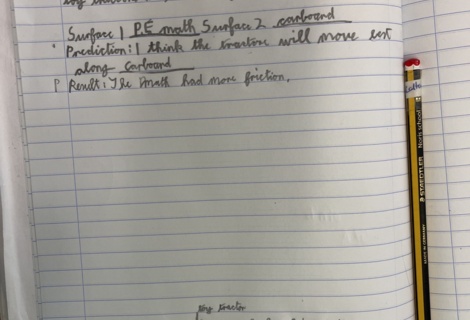 Surface 1 PE math Surface 2 carboard
Prediction: I think the tractor will move est
along carboard
P Result: The math had more friction.
toy tractor
STAEDTLER